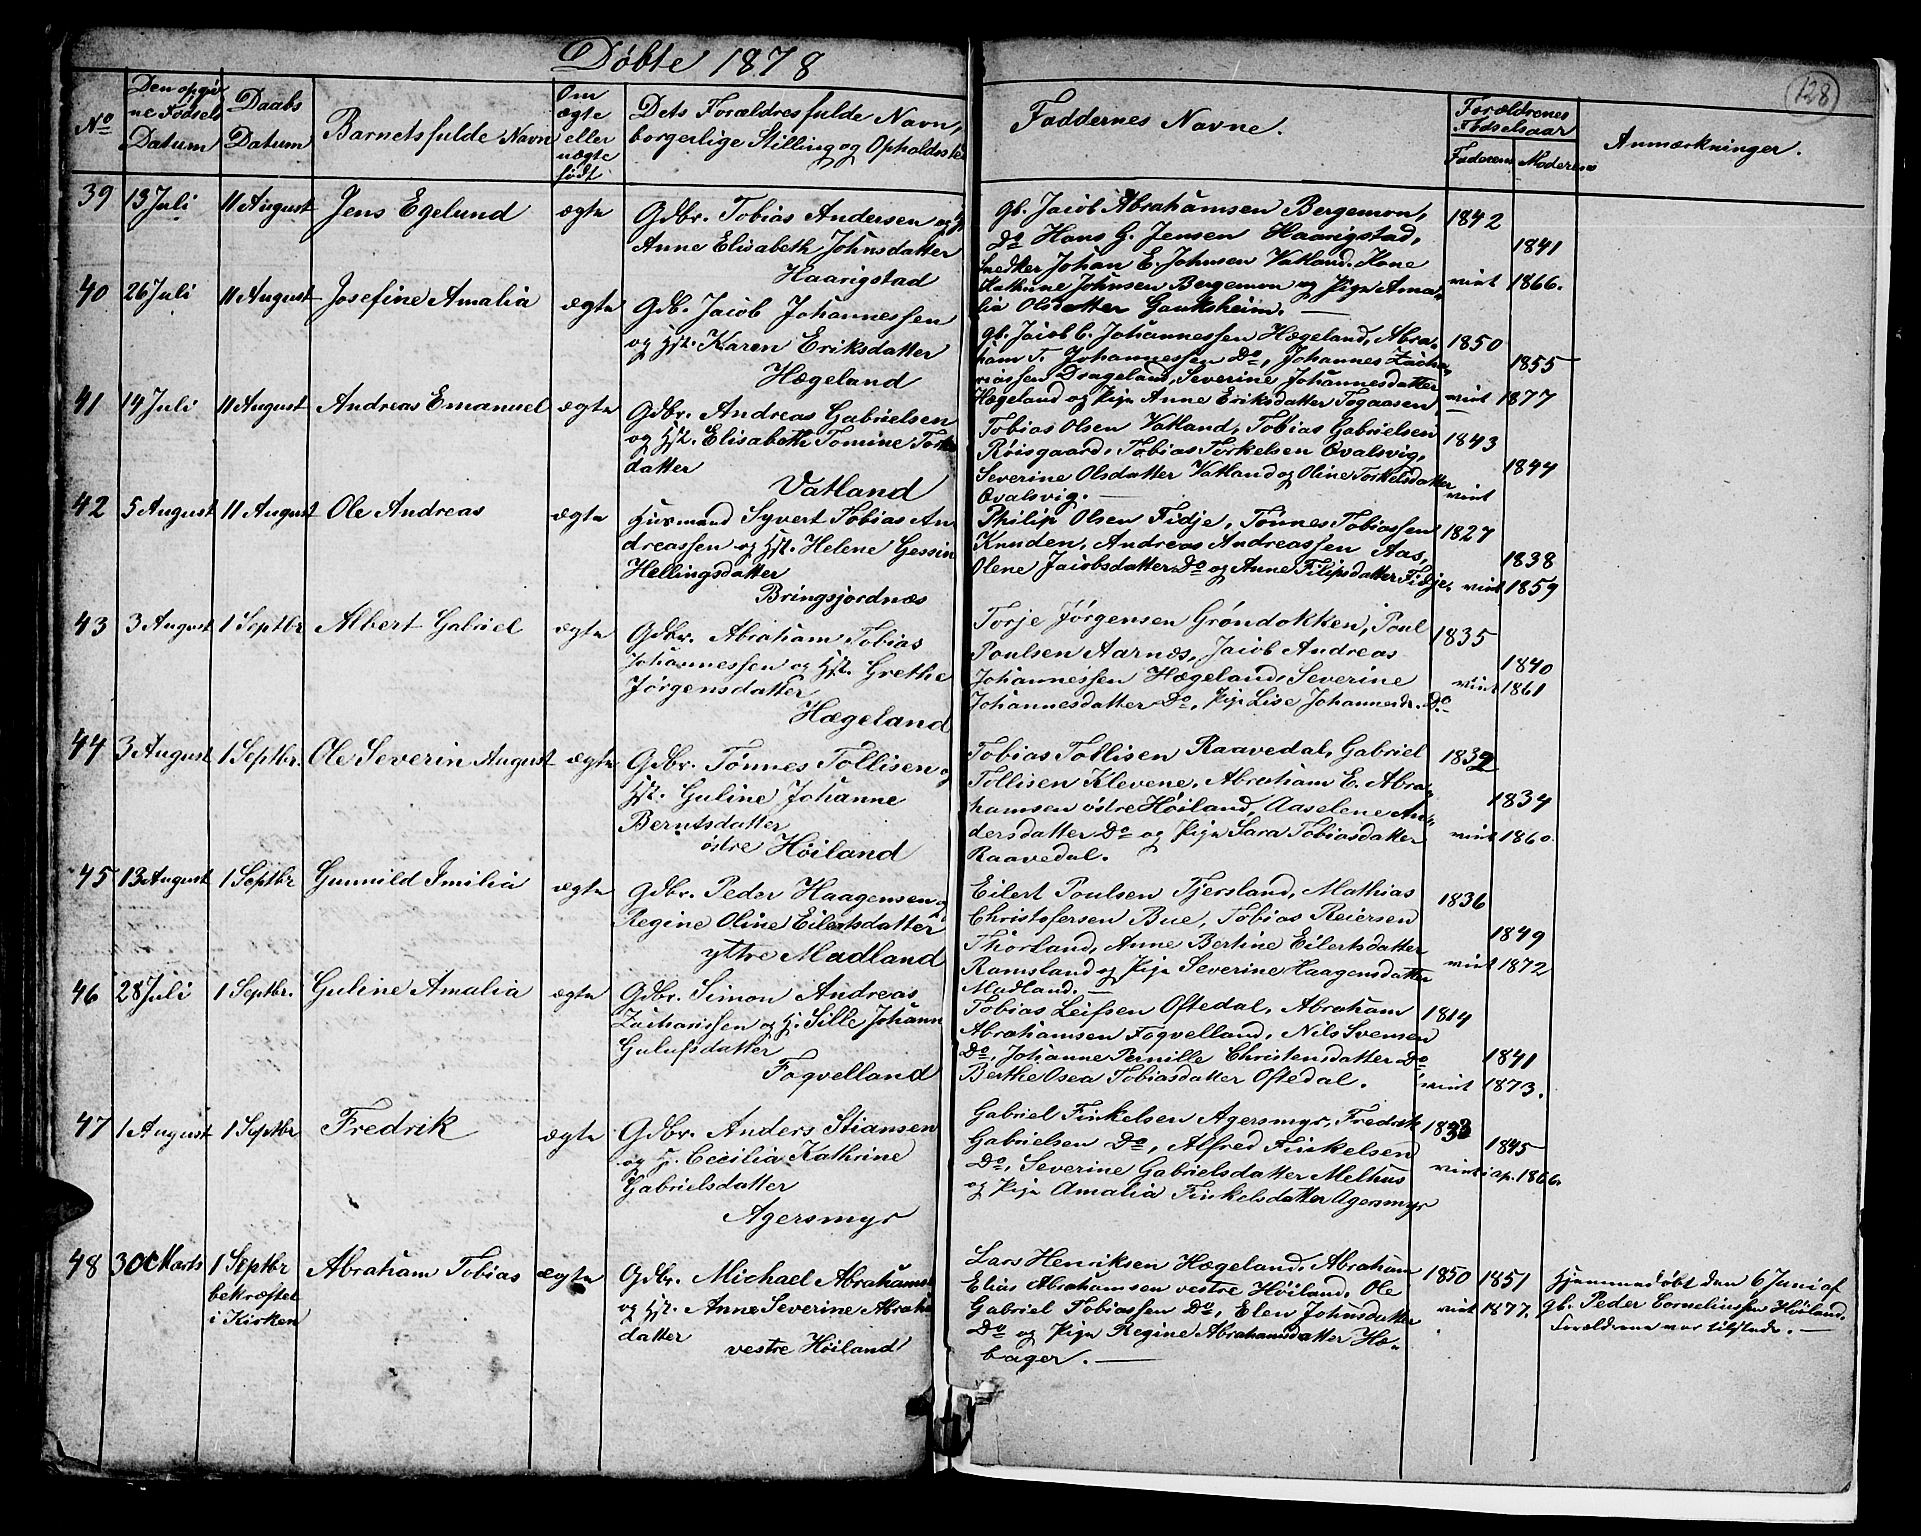 Døbte 1878
128
No
Den opgivne Fødsels Datum
Daabs Datum
Barnets fulde Navn
Om ægte eller uægte født
Dets Forældres fulde Navn, borgerlige Stilling og Opholdsste
Faddernes Navne.
Forældrenes Fødselsaar
Faderens
Moderens
Anmærkninger.
39 13 Juli 11 August Jens Egelund ægte
Gdbr. Tobias Andersen og
Anne Elisabeth Johnsdatter
Haarigstad
gb. Jacob Abrahamsen Bergemon,
Do Hans G. Jensen Haarigstad,
Snedker Johan E. Johnsen Vatland. Kone
Kathrine Johnsen Bergemon og Pige Ama-
lia Olsdatter Gauksheim. —
1842
1841
viet 1866.
40 26 Juli 11 August Josefine Amalia ægte
Gdb. Jacob Johannessen
og Hst. Karen Eriksdatter
Hægeland
gb. Jacob C. Johannessen Hægeland, Abra-
ham T. Johannessen Do, Johannes Zacha-
riassen Drageland, Severine Johannesdatter
Hægeland og Pige Anne Eriksdatter Fogaasen
1850
1855
viet 1877
41 14 Juli 11 August Andreas Emanuel ægte
Gdbr. Andreas Gabrielsen
og Hst. Elisabeth Tomine Tork
datter
Vatland
Tobias Olsen Vatland, Tobias Gabrielsen
Røisgaard, Tobias Torkelsen Ovalsvig,
Severine Olsdatter Vatland og Oline Torkelsdatter
Ovalsvig. —
1843
1844
viet
42 5 August 11 August Ole Andreas ægte
Husmand Syvert Tobias An
dreassen og Hst. Helene Gessin
Hellingsdatter
Bringsjordnæs
Philip Olsen Fidje, Tønnes Tobiassen
Knuden, Andreas Andreassen Aas,
Olene Jacobsdatter Do og Anne Filipsdatter Fidje.
1827
1838
viet 1859
43 3 August 1 Septbr Albert Gabriel ægte
Gdbr. Abraham Tobias
Johannessen og Hst. Grethe
Jørgensdatter
Hægeland
Torje Jørgensen Grøndokken, Poul
Poulsen Aarnæs, Jacob Andreas
Johannessen Hægeland, Severine
Johannesdatter Do, Pige Lise Johannesdr. Do
1835
1840
viet 1861
44 3 August 1 Septbr. Ole Severin August ægte
Gdbr. Tønnes Tollisen og
Hst. Guline Johanne
Berntsdatter
østre Høiland
Tobias Tollisen Raavedal, Gabriel
Tollisen Klevene, Abraham E. Abra-
hamsen østre Høiland, Aaselene An-
dersdatter Do og Pige Sara Tobiasdatter
Raavedal.
1832
1834
viet 1860.
45 13 August 1 Septbr Gunnild Imilia ægte
Gdbr. Peder Haagensen og
Regine Oline Eilertsdatter
yttre Madland
Eilert Poulsen Tjersland, Mathias
Christofersen Bue, Tobias Reiersen
Thorland, Anne Bertine Eilertsdatter
Ramsland og Pige Severine Haagensdatter
Madland. —
1836
1849
viet 1872
46 28 Juli 1 Septbr. Guline Amalia ægte
Gdbr. Simon Andreas
Zacharissen og H. Sille Johann
Gulufsdatter
Foqvelland
Tobias Leifsen Oftedal, Abraham
Abrahamsen Foqvelland, Nils Svensen
Do, Johanne Pernille Christensdatter Do
Berthe Osea Tobiasdatter Oftedal.
1814
1841
viet 1873.
47 1 August 1 Septbr Fredrik ægte
Gdbr. Anders Stiansen
og H. Cecilia Kathrine
Gabrielsdatter
Agersmyr
Gabriel Finkelsen Agersmyr, Fredrik
Gabrielsen Do, Alfred Finkelsen
Do, Severine Gabrielsdatter Melhus
og Pige Amalia Finkelsdatter Agersmyr
1833
1845
viet ap. 1866.
48 30 Marts 1 Septbr bekræftet i Kirken Abraham Tobias ægte
Gdbr. Michael Abrahams
og Hst. Anne Severine Abraha
datter
vestre Høiland
Lars Henriksen Hægeland, Abraham
Elias Abrahamsen vestre Høiland, Ole
Gabriel Tobiassen Do, Elen Johnsdatter
Do og Pige Regine Abrahamsdatter Hæ-
bager. —
1850 1851
viet 1877.
Hjemmedøbt den 6 Juni af
gb. Peder Corneliussen Høiland.
Forældrene var tilstede. —